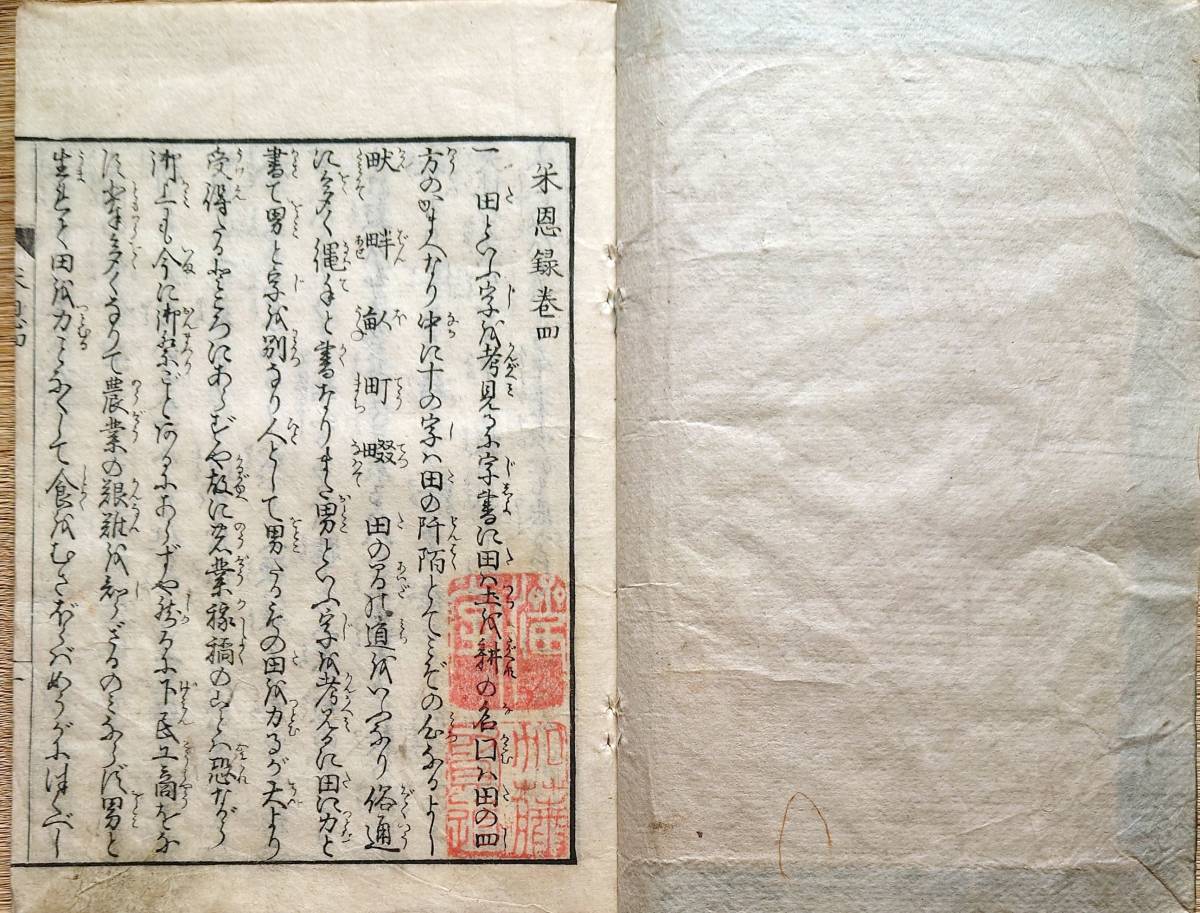 米恩録巻四
一 田といふ字を考見るに字書に田ハ土を耕の名口ハ田の四
方のかまへなり中に十の字ハ田の阡陌とてみぞの名なるよし
畎 畔 畝 町 畷 田の間の道をいふなり俗通
に多く縄手と書なりまた男といふ字を考見るに田に力と
書て男と字を別なり人として男たるもの田を力るが天より
受得たるところにあらずや故に農業稼穡のことハ恐ながら
御上にも今に御祭ごとあるにあらずや然るに下民工商をな
に輩多くなりて農業の艱難を知らざるのみならず男と
生れて田を力ことなくして食をむさぼらばめうがに法べし
加藤